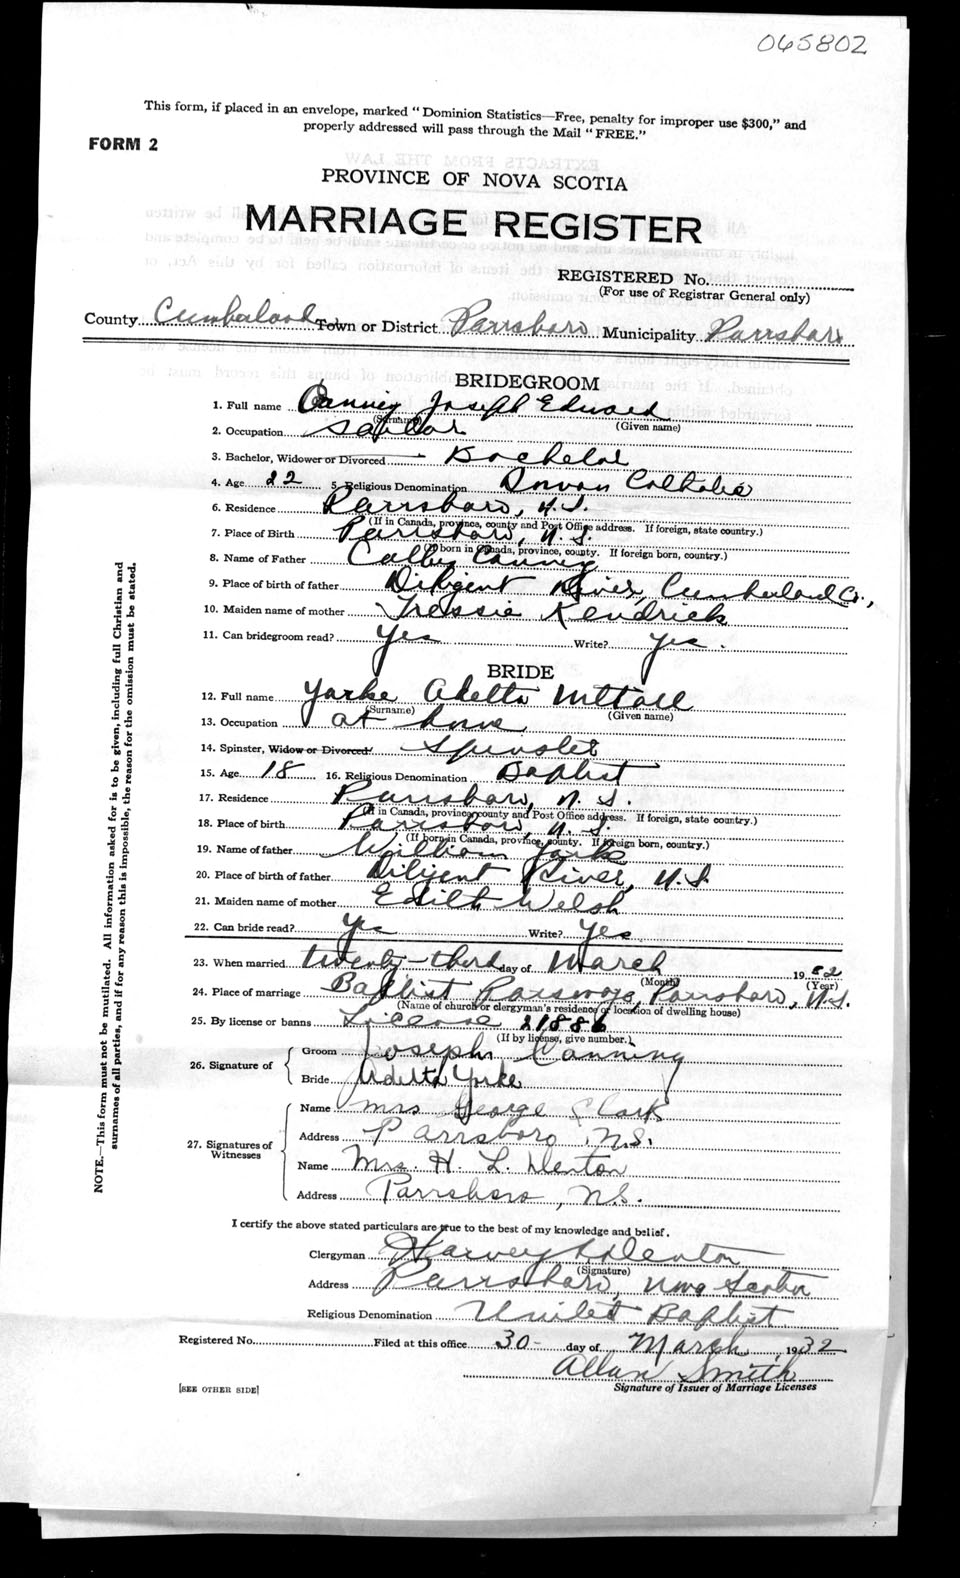 065802
This form, if placed in an envelope, marked "Dominion Statistics—Free, penalty for improper use $300," and
properly addressed will pass through the Mail "FREE."
FORM 2
PROVINCE OF NOVA SCOTIA
MARRIAGE REGISTER
REGISTERED No.
(For use of Registrar General only)
County Cumberland Town or District Parrsboro Municipality Parrsboro
BRIDEGROOM
1. Full name Canning Joseph Edward
(Surname) (Given name)
2. Occupation Sailor
3. Bachelor, Widower or Divorced Bachelor
4. Age 22 5. Religious Denomination Roman Catholic
6. Residence Parrsboro, N.S.
(If in Canada, province, county and Post Office address. If foreign, state country.)
7. Place of Birth Parrsboro, N.S.
(If born in Canada, province, county. If foreign born, country.)
8. Name of Father Canning
9. Place of birth of father Diligent River, Cumberland Co.,
10. Maiden name of mother Tressie Kendrick
11. Can bridegroom read? Yes Write? Yes.
BRIDE
12. Full name Yorke Adelta
(Surname) (Given name)
13. Occupation at home
14. Spinster, Widow or Divorced Spinster
15. Age 18 16. Religious Denomination Baptist
17. Residence Parrsboro, N.S.
(If in Canada, province, county and Post Office address. If foreign, state country.)
18. Place of birth Parrsboro, N.S.
(If born in Canada, province, county. If foreign born, country.)
19. Name of father William Yorke
20. Place of birth of father Diligent River, N.S.
21. Maiden name of mother Edith Welsh
22. Can bride read? Yes Write? Yes
23. When married twenty-third day of March 1932
(Month) (Year)
24. Place of marriage Baptist Parsonage, Parrsboro, N.S.
(Name of church or clergyman's residence or location of dwelling house)
25. By license or banns License 21886
(If by license, give number.)
26. Signature of
Groom Joseph Canning
Bride Adelta Yorke
27. Signatures of Witnesses
Name Mrs George Clark
Address Parrsboro, N.S.
Name Mrs. H. L. Denton
Address Parrsboro, N.S.
I certify the above stated particulars are true to the best of my knowledge and belief.
Clergyman Harvey L Denton
(Signature)
Address Parrsboro, Nova Scotia
Religious Denomination United Baptist
Registered No. Filed at this office 30- day of March, 1932
Allan Smith
[SEE OTHER SIDE] Signature of Issuer of Marriage Licenses
NOTE.—This form must not be mutilated. All information asked for is to be given, including full Christian and
surnames of all parties, and if for any reason this is impossible, the reason for the omission must be stated.